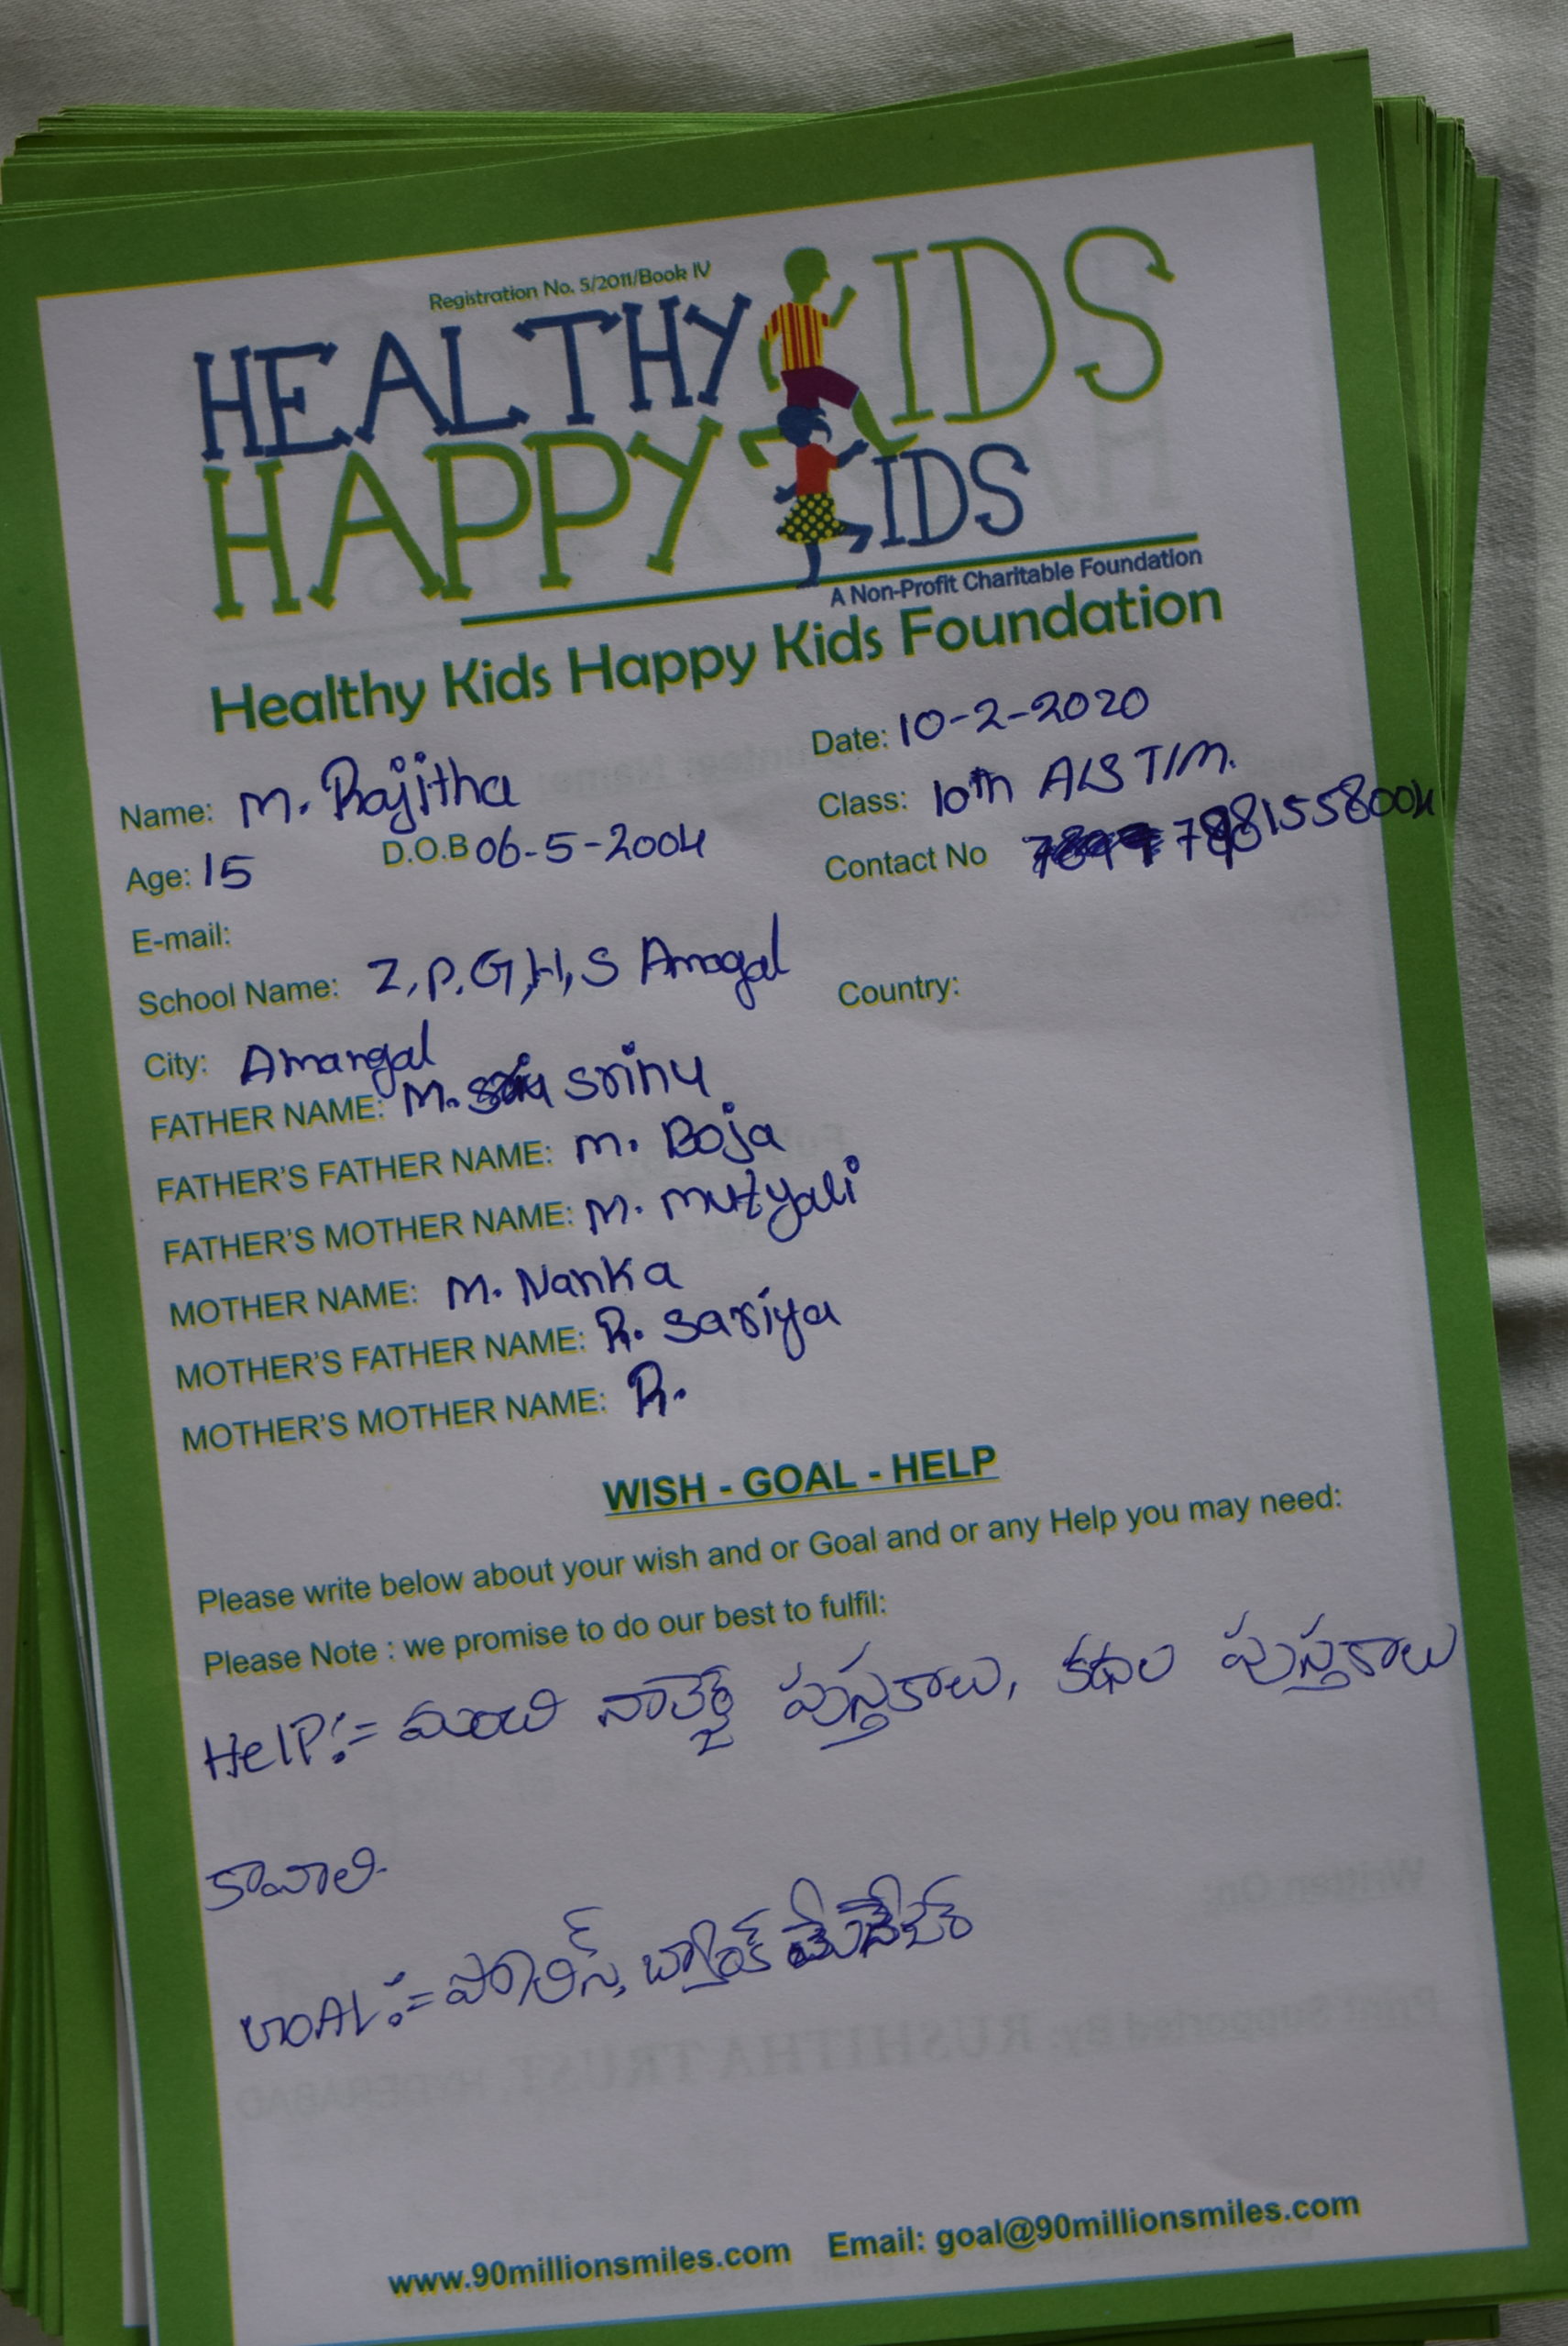 Registration No. 5/2011/Book IV
HEALTHY KIDS
HAPPY KIDS
A Non-Profit Charitable Foundation
Healthy Kids Happy Kids Foundation
Date: 10-2-2020
Name: M. Rajitha
Class: 10th A/S T/M.
Age: 15 D.O.B 06-5-2004
Contact No
E-mail:
School Name: Z.P.G.H.S Amagal
Country:
City: Amangal
FATHER NAME: M. Srinu
FATHER'S FATHER NAME: M. Boja
FATHER'S MOTHER NAME: M. mutyali
MOTHER NAME: M. Nanka
MOTHER'S FATHER NAME: R. Sariya
MOTHER'S MOTHER NAME: R.
WISH - GOAL - HELP
Please write below about your wish and or Goal and or any Help you may need:
Please Note : we promise to do our best to fulfil:
HelP:= మంచి పుస్తకాలు, కథల పుస్తకాలు
కావాలి.
GOAL:= పోలిస్, బ్యాంక్ మేనేజర్
www.90millionsmiles.com Email: goal@90millionsmiles.com